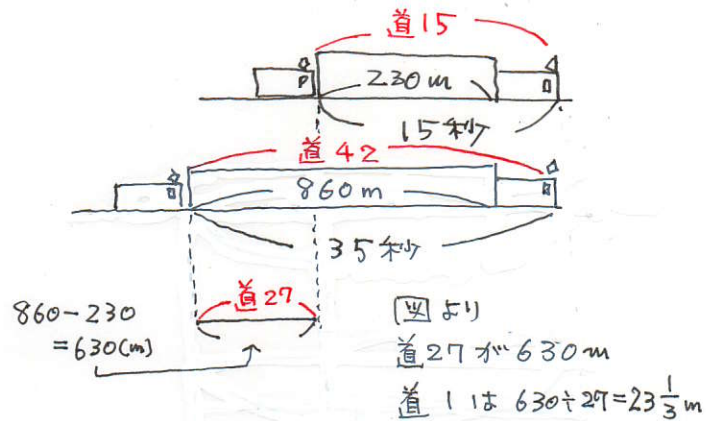 道15
230m
15秒
道42
860m
35秒
道27
860-230
=630(m)
図より
道27が630m
道1は630÷27=23 1/3 m